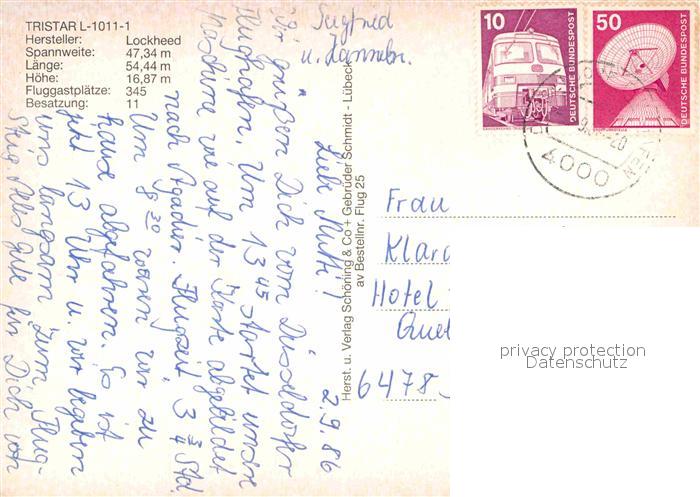 TRISTAR L-1011-1
Hersteller: Lockheed
Spannweite: 47,34 m
Länge: 54,44 m
Höhe: 16,87 m
Fluggastplätze: 345
Besatzung: 11
2.9.86
Liebe Mutti!
Wir grüßen Dich vom Düsseldorfer
Flughafen. Um 13 45 startet unsere
Maschine wie auf der Karte abgebildet
nach Agadir. Flugzeit 3 3/4 Std.
Um 8 30 waren wir zu
Hause abgefahren. Es ist
jetzt 13 Uhr u. wir begeben
uns langsam zum Flug-
steig. Alles gute für Dich von
Siegfried
u. Hannelore.
Herst. u. Verlag Schöning & Co + Gebrüder Schmidt - Lübeck
av Bestellnr. Flug 25
10
DEUTSCHE BUNDESPOST
50
DEUTSCHE BUNDESPOST
4000
Frau
Klara
Hotel
Quel
6478
privacy protection
Datenschutz